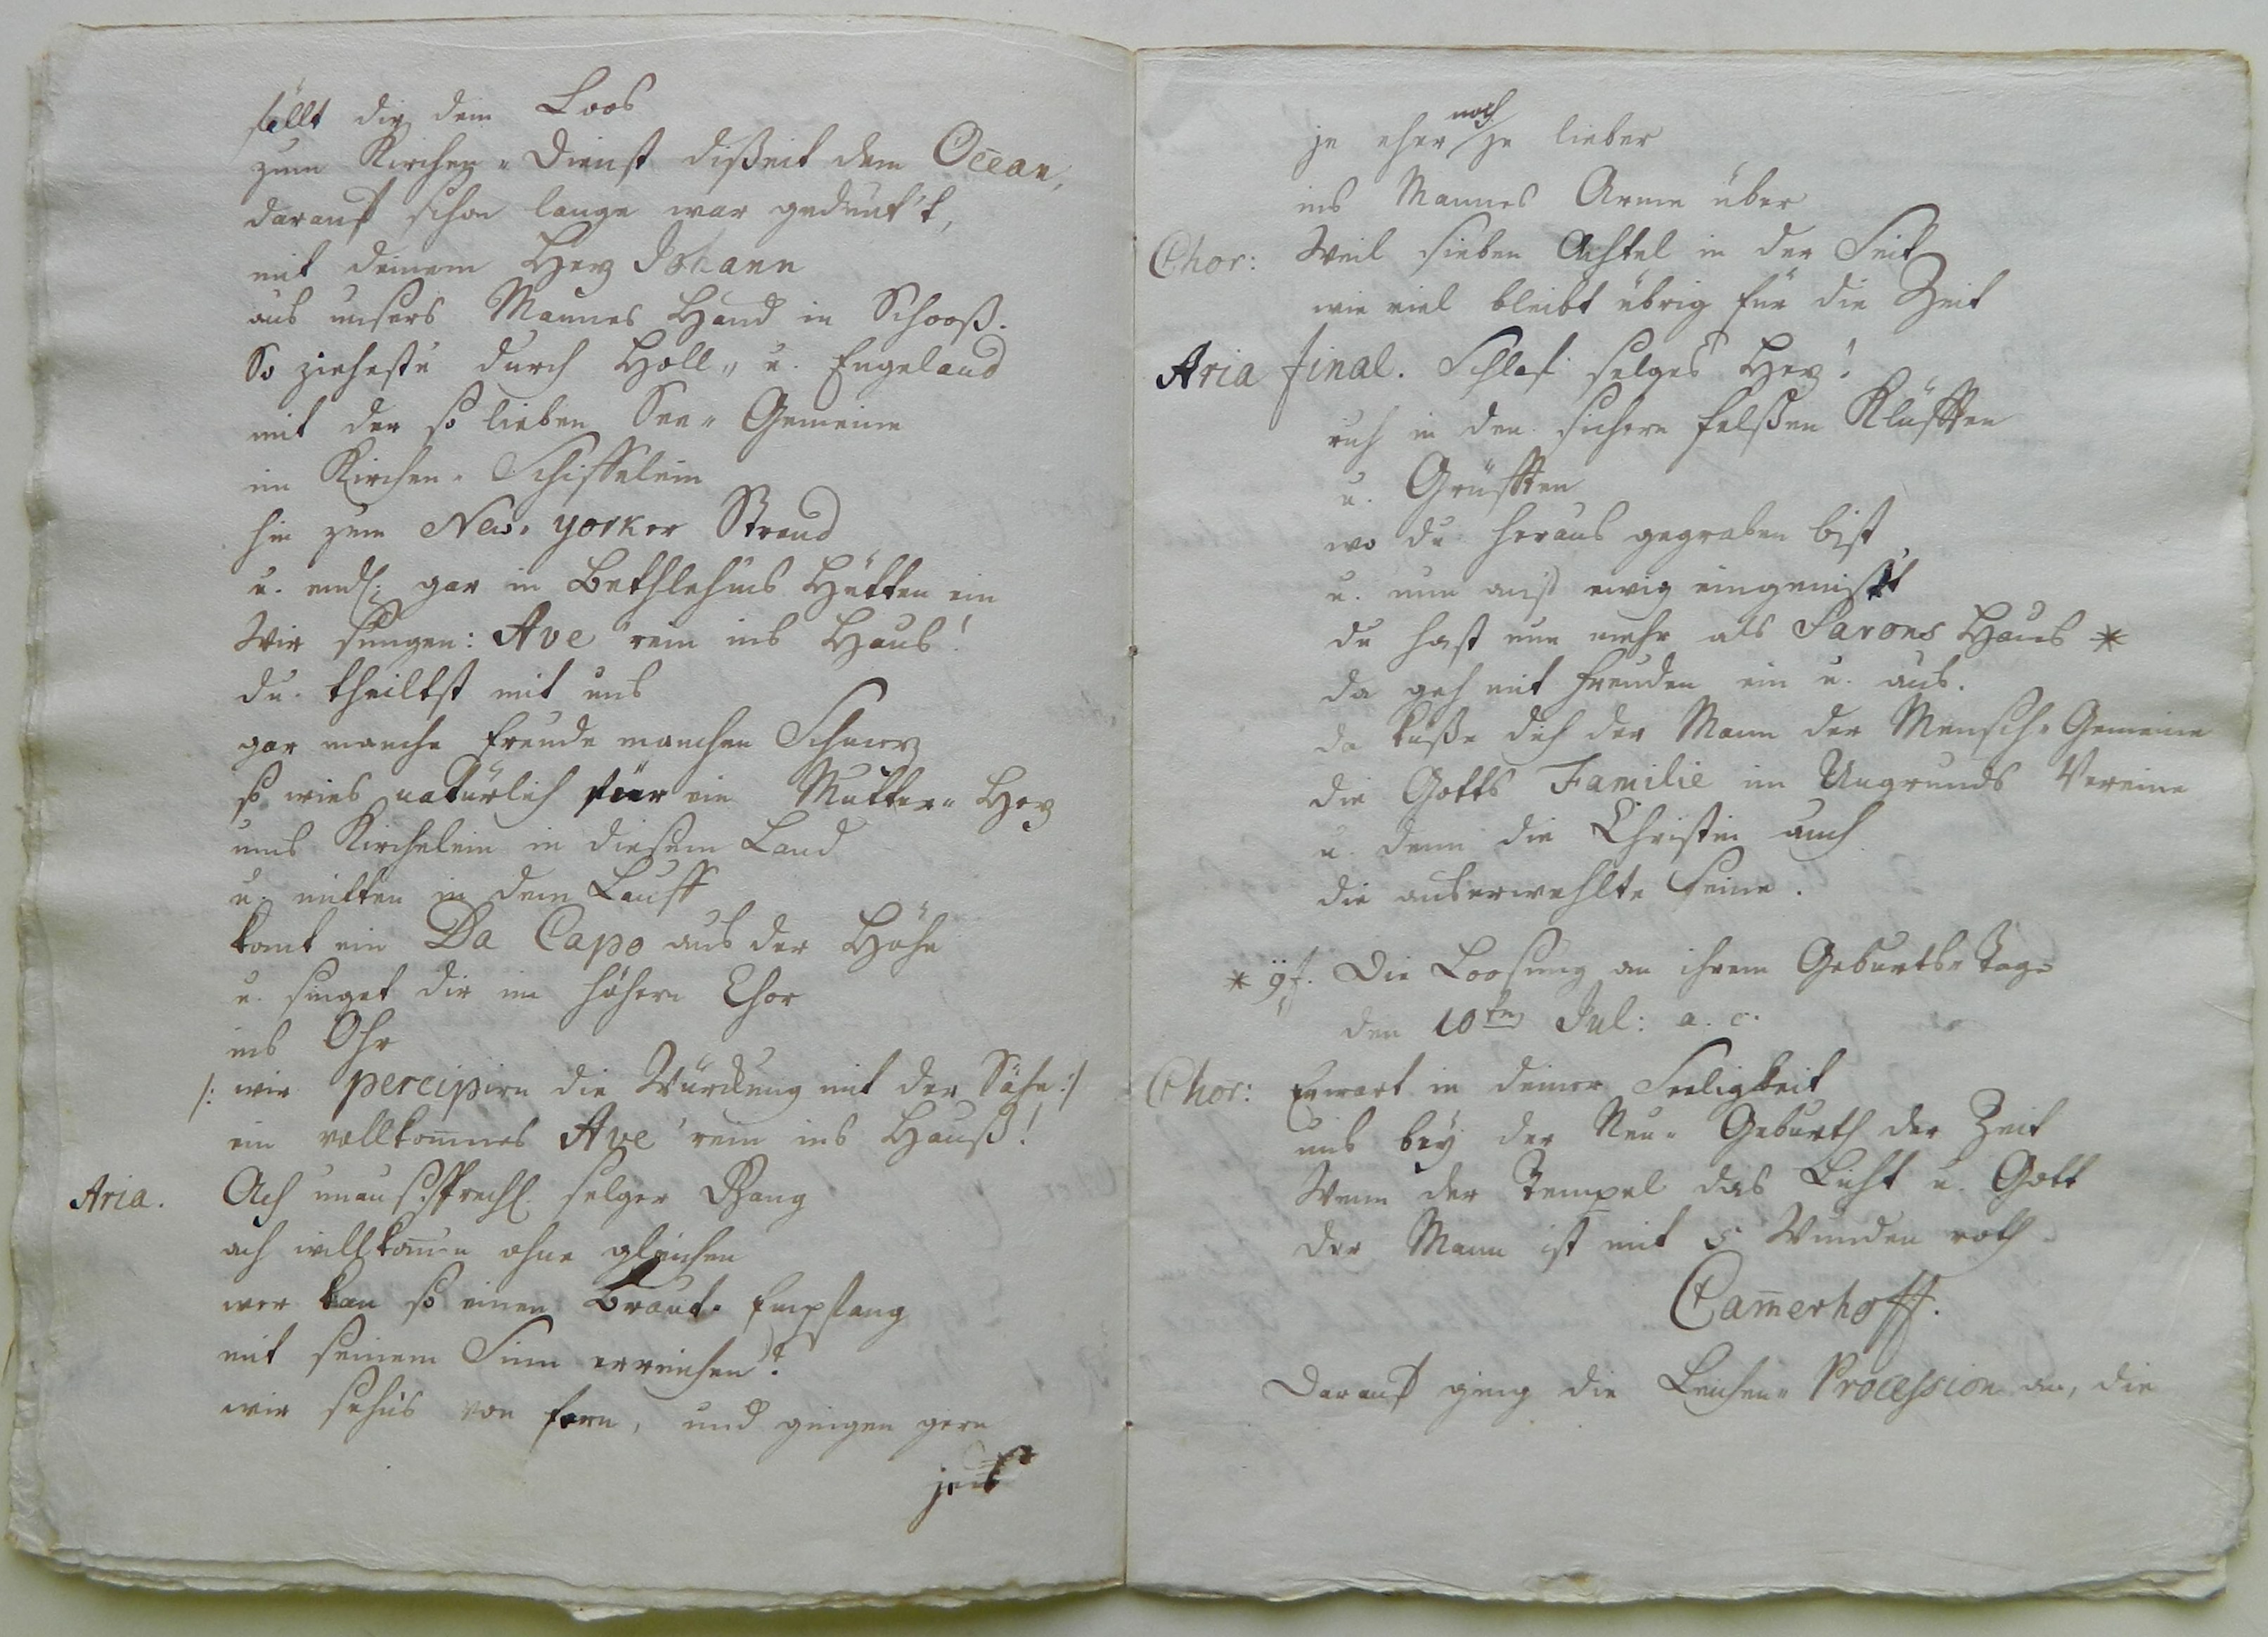 fällt dir dein Loos
zum Kirchen-Dienst disseit dem Ocean,
darauf schon lange war gedenk't,
mit deinem Herz Johann
aus unsers Mannes Hand in Schooß.
So ziehestu durch Holl- u. Engeland
mit der so lieben See-Gemeine
im Kirchen-Schiffelein
hin zum New-yorker Strand
u. endl: gar in Bethlehms Hütten ein
Wir sungen: Ave 'rein ins Haus!
du theiltst mit uns
gar manche Freude manchen Schmerz
so wies natürlich für ein Mutter-Herz
ums Kirchelein in diesem Land
u. mitten in dem Lauff
komt ein Da Capo aus der Höhe
u. singet dir im höhern Chor
ins Ohr
/: wir percipirn die Würckung mit der Nähe :/
ein vollkom̅nes Ave 'rein ins Hauß!
Aria. Ach unaussprechl. selger Gang
ach willkom̅n ohne gleichen
wer kan so einen Braut-Empfang
mit seinem Sinn erreichen?
wir sehns von fern, und gingen gern
je eher noch je lieber
ins Mannes Arme über
Chor: Weil sieben Achtel in der Seit
wie viel bleibt übrig für die Zeit
Aria final. Schlaf selges Herz!
ruh in den sichern felßen Klüfften
u. Grüfften
wo du heraus gegraben bist
u. nun auf ewig eingenist't
du hast nun mehr als Sarons Haus *
da geh mit Freuden ein u. aus.
da küsse dich der Mann der Mensch-Gemeine
die Gotts Familie im Ungrunds Vereine
u. denn die Christin auch
die auserwehlte Seine.
* Die Loosung an ihrem Geburts-Tage
den 10ten Jul: a. c.
Chor: Erwart in deiner Seeligkeit
uns bey der Neu-Geburth der Zeit
Wenn der Tempel das Licht u. Gott
der Mann ist mit 5 Wunden roth
Cam̅erhoff.
Darauf ging die Leichen-Procession an, die